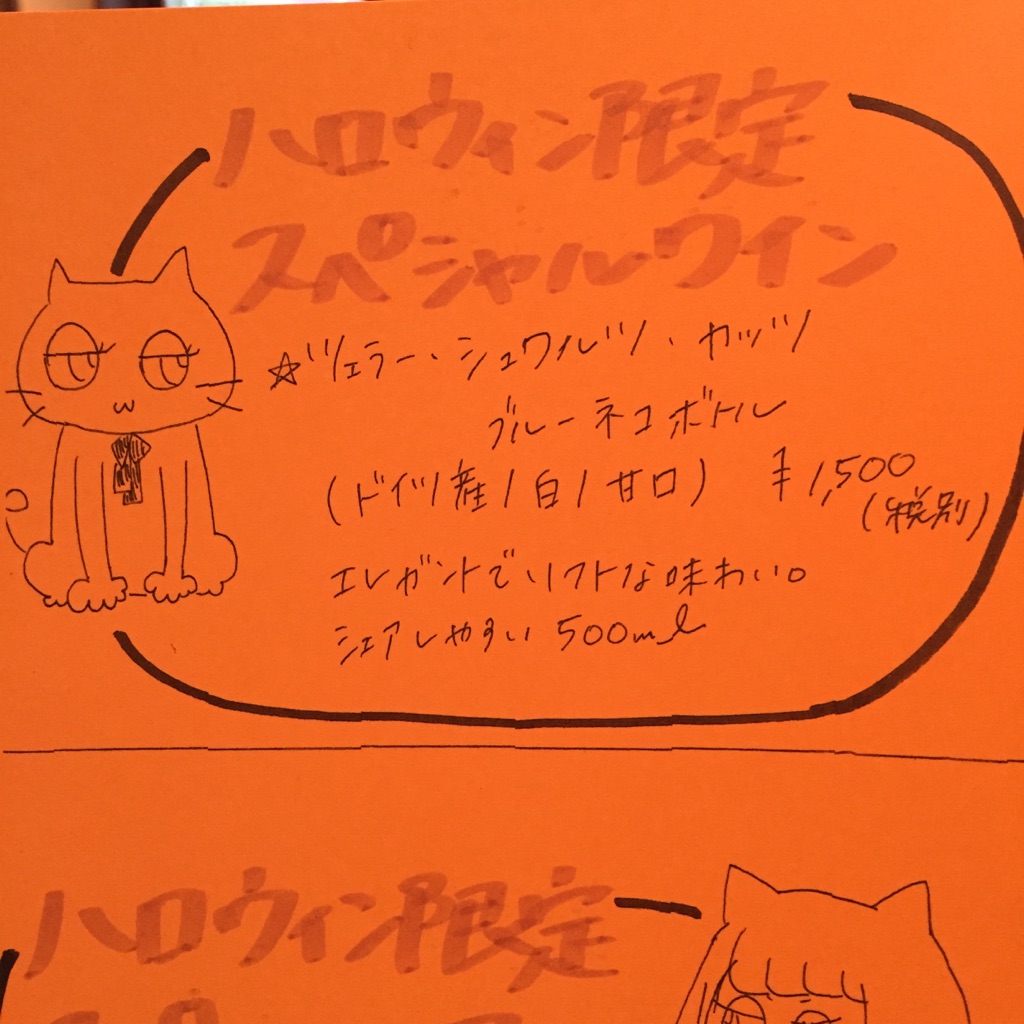 ハロウィン限定
スペシャルワイン
☆ツェラー・シュワルツ・カッツ
ブルーネコボトル
(ドイツ産/白/甘口) ¥1,500
(税別)
エレガントでソフトな味わい。
シェアしやすい500ml
ハロウィン限定